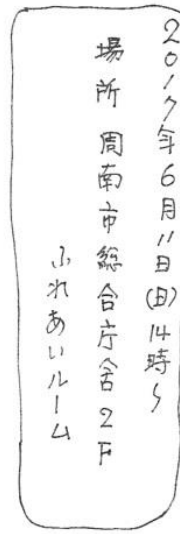 2017年6月11日(日)14時〜
場所 周南市総合庁舎2F
ふれあいルーム